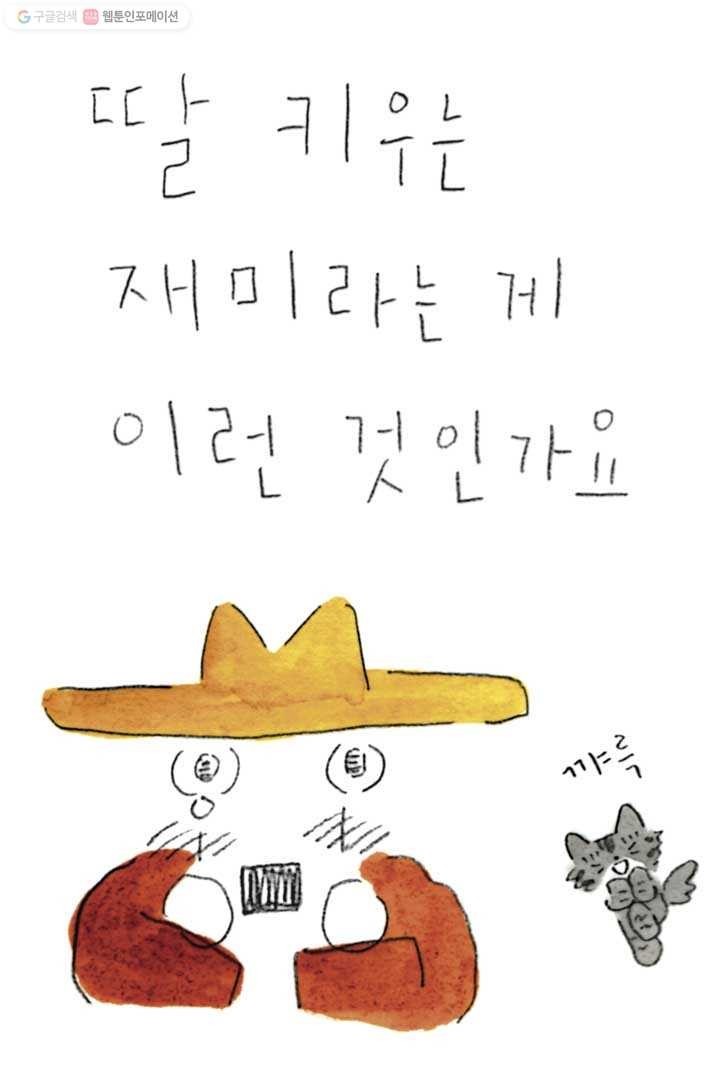 구글검색 웹툰인포메이션
딸 키우는
재미라는 게
이런 것인가요
꺄륵